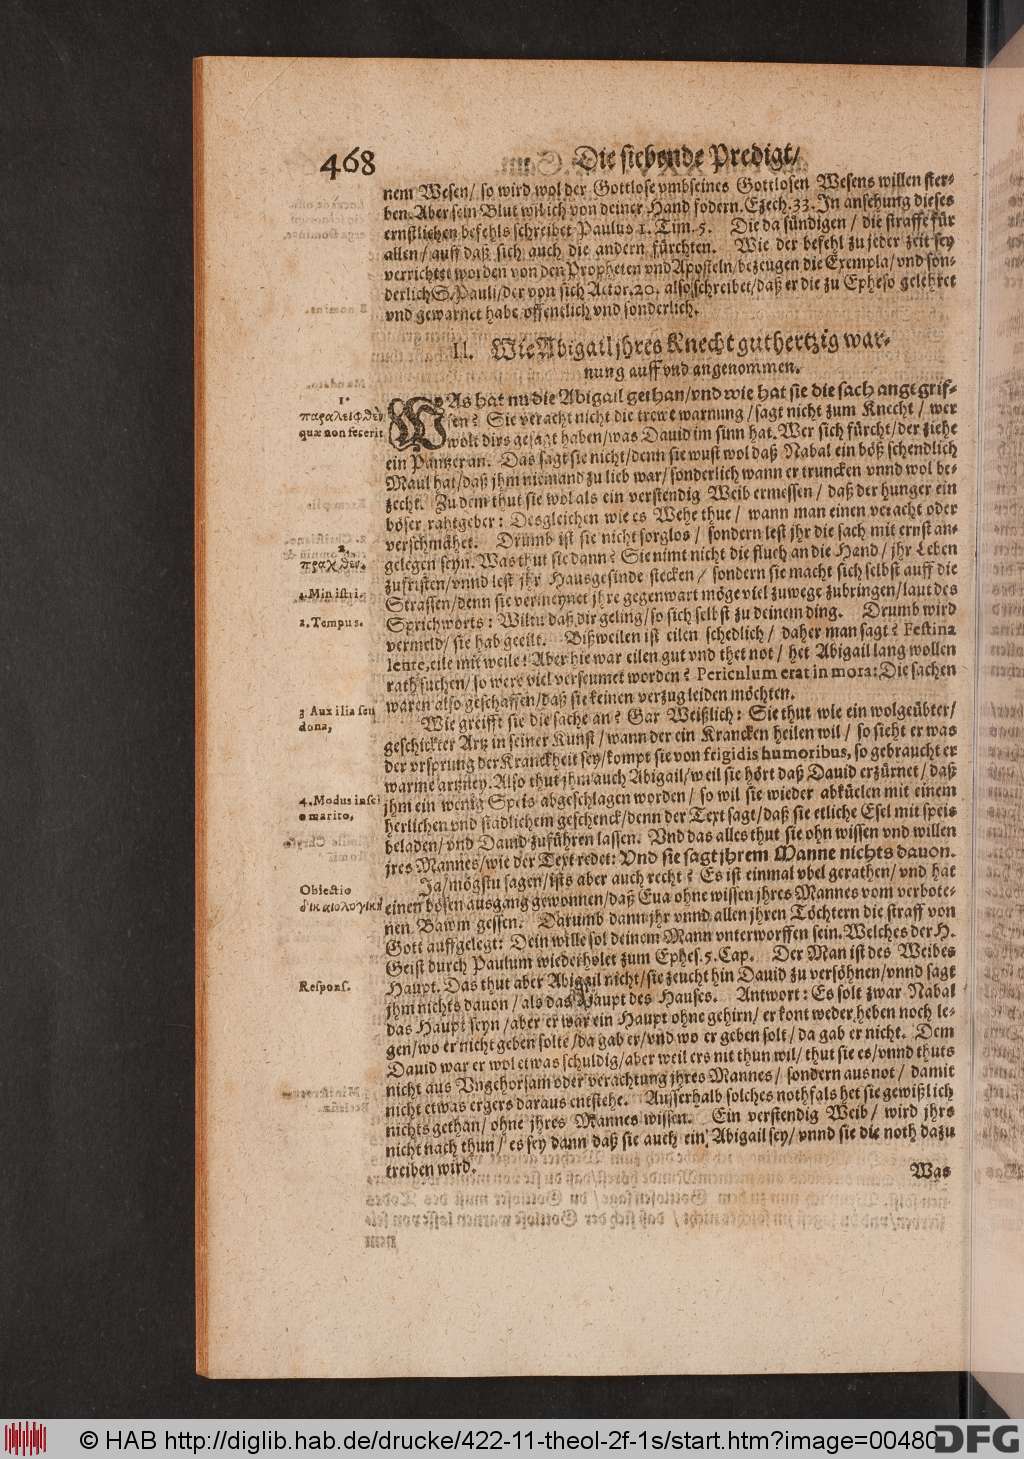 468
Die siebende Predigt/
nem Wesen/ so wird wol der Gottlose vmb seines Gottlosen Wesens willen ster-
ben. Aber sein Blut wil ich von deiner Hand fodern. Ezech. 33. In ansehung dieses
ernstlichen befehls schreibet Paulus 1. Tim. 5. Die da sündigen / die straffe für
allen/ auff daß sich auch die andern fürchten. Wie der befehl zu jeder zeit sey
verrichtet worden von den Propheten vnd Aposteln/ bezeugen die Exempla/ vnd son-
derlich S. Pauli/ der von sich Actor. 20. also schreibet/ daß er die zu Epheso gelehret
vnd gewarnet habe offentlich vnd sonderlich.
II. Wie Abigail jhres Knecht guthertzig war-
nung auff vnd angenommen.
1.
παραλειφθὲν
quæ non fecerit
WAs hat nu die Abigail gethan/ vnd wie hat sie die sach angegrif-
fen? Sie veracht nicht die trewe warnung / sagt nicht zum Knecht / wer
wolt dirs gesagt haben/ was Dauid im sinn hat. Wer sich fürcht/ der ziehe
ein Pantzer an. Das sagt sie nicht/ denn sie wust wol daß Nabal ein böß schendlich
Maul hat/ daß jhm niemand zu lieb war/ sonderlich wann er truncken vnnd wol be-
zecht. Zu dem thut sie wol als ein verstendig Weib ermessen / daß der hunger ein
böser rahtgeber: Desgleichen wie es Wehe thue / wann man einen veracht oder
verschmähet. Drumb ist sie nicht sorglos / sondern lest jhr die sach mit ernst an-
2.
πραχθέν.
gelegen seyn. Was thut sie dann? Sie nimt nicht die fluch an die Hand / jhr Leben
zufristen/ vnnd lest jhr Hausgesinde stecken / sondern sie macht sich selbst auff die
1. Ministri.
Strassen/ denn sie vermeynet jhre gegenwart möge viel zuwege zubringen/ laut des
2. Tempus.
Sprichworts: Wiltu daß dir geling/ so sich selbst zu deinem ding. Drumb wird
vermeld/ sie hab geeilt. Bißweilen ist eilen schedlich / daher man sagt? Festina
lente, eile mit weile! Aber hie war eilen gut vnd thet not / het Abigail lang wollen
rath suchen/ so were viel verseumet worden? Periculum erat in mora: Die sachen
waren also geschaffen/ daß sie keinen verzug leiden möchten.
3 Auxilia seu
dona,
Wie greifft sie die sache an? Gar Weißlich: Sie thut wie ein wolgeübter/
geschickter Artz in seiner Kunst / wann der ein Krancken heilen wil / so sieht er was
der vrsprung der Kranckheit sey/ kompt sie von frigidis humoribus, so gebraucht er
warme artzney. Also thut jhm auch Abigail/ weil sie hört daß Dauid erzürnet / daß
4. Modus inscio
marito,
jhm ein wenig Speis abgeschlagen worden / so wil sie wieder abküelen mit einem
herlichen vnd stadlichem geschenck/ denn der Text sagt/ daß sie etliche Esel mit speis
beladen/ vnd Dauid zuführen lassen. Vnd das alles thut sie ohn wissen vnd willen
jres Mannes/ wie der Text redet: Vnd sie sagt jhrem Manne nichts dauon.
Obiectio
δικαιολογική
Ja/ mögstu sagen/ ists aber auch recht? Es ist einmal vbel gerathen/ vnd hat
einen bösen ausgang gewonnen/ daß Eua ohne wissen jhres Mannes vom verbote-
nen Bawm gessen. Darumb dann jhr vnnd allen jhren Töchtern die straff von
Gott auffgelegt: Dein wille sol deinem Mann vnterworffen sein. Welches der H.
Geist durch Paulum wiederholet zum Ephes. 5. Cap. Der Man ist des Weibes
Respons.
Haupt. Das thut aber Abigail nicht/ sie zeucht hin Dauid zu versöhnen/ vnnd sagt
jhm nichts dauon / als das Haupt des Hauses. Antwort: Es solt zwar Nabal
das Haupt seyn / aber er war ein Haupt ohne gehirn/ er kont weder heben noch le-
gen/ wo er nicht geben solte/ da gab er/ vnd wo er geben solt / da gab er nicht. Dem
Dauid war er wol etwas schuldig/ aber weil ers nit thun wil/ thut sie es/ vnnd thuts
nicht aus Vngehorsam oder verachtung jhres Mannes / sondern aus not / damit
nicht etwas ergers daraus entstehe. Ausserhalb solches nothfals het sie gewißlich
nichts gethan/ ohne jhres Mannes wissen. Ein verstendig Weib / wird jhrs
nicht nach thun / es sey dann daß sie auch ein Abigail sey/ vnnd sie die noth dazu
treiben wird.
Was
© HAB http://diglib.hab.de/drucke/422-11-theol-2f-1s/start.htm?image=00480
DFG